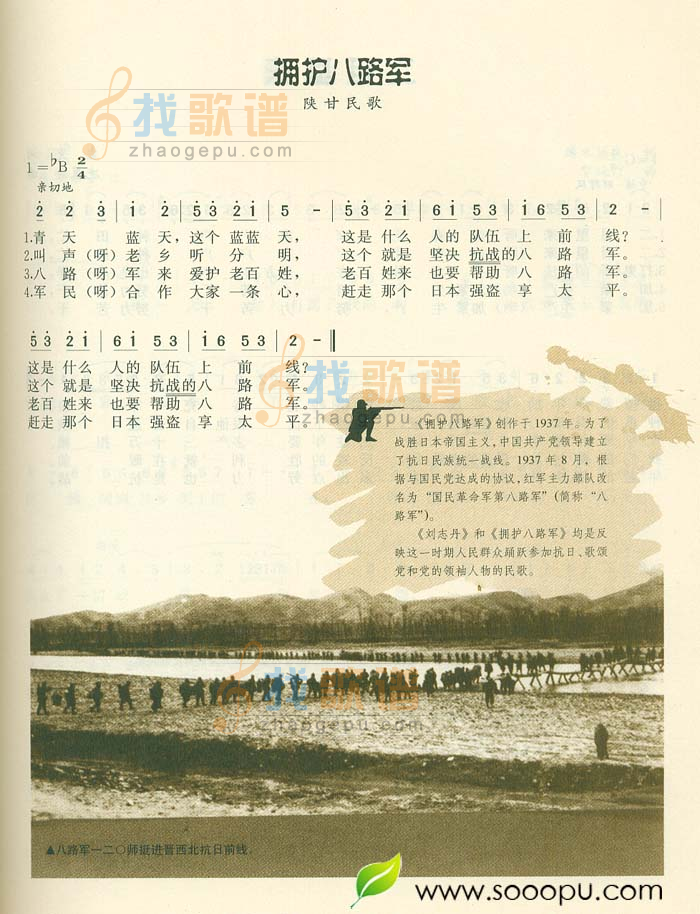 拥护八路军
陕甘民歌
找歌谱
zhaogepu.com
1=♭B 2/4
亲切地
2̇ 2̇ 3̇ | 1̇ 2̇ | 5̇3̇ 2̇1̇ | 5 - | 5̇3̇ 2̇1̇ | 61̇ 5̇3̇ | 1̇6 53 | 2 - |
1.青 天 蓝 天,这个 蓝蓝 天, 这是 什么 人的 队伍 上 前 线?
2.叫 声(呀)老 乡 听 分 明, 这个 就是 坚决 抗战的 八 路 军。
3.八 路(呀)军 来 爱护 老百 姓, 老百 姓来 也要 帮助 八 路 军。
4.军 民(呀)合 作 大家 一条 心, 赶走 那个 日本 强盗 享 太 平。
5̇3̇ 2̇1̇ | 61̇ 5̇3̇ | 1̇6 53 | 2 - ‖
这是 什么 人的 队伍 上 前 线?
这个 就是 坚决 抗战的 八 路 军。
老百 姓来 也要 帮助 八 路 军。
赶走 那个 日本 强盗 享 太 平。
找歌谱
zhaogepu.com
《拥护八路军》创作于1937年。为了
战胜日本帝国主义,中国共产党领导建立
了抗日民族统一战线。1937年8月,根
据与国民党达成的协议,红军主力部队改
名为“国民革命军第八路军”(简称“八
路军”)。
《刘志丹》和《拥护八路军》均是反
映这一时期人民群众踊跃参加抗日、歌颂
党和党的领袖人物的民歌。
找歌谱
zhaogepu.com
▲八路军一二〇师挺进晋西北抗日前线。
www.sooopu.com